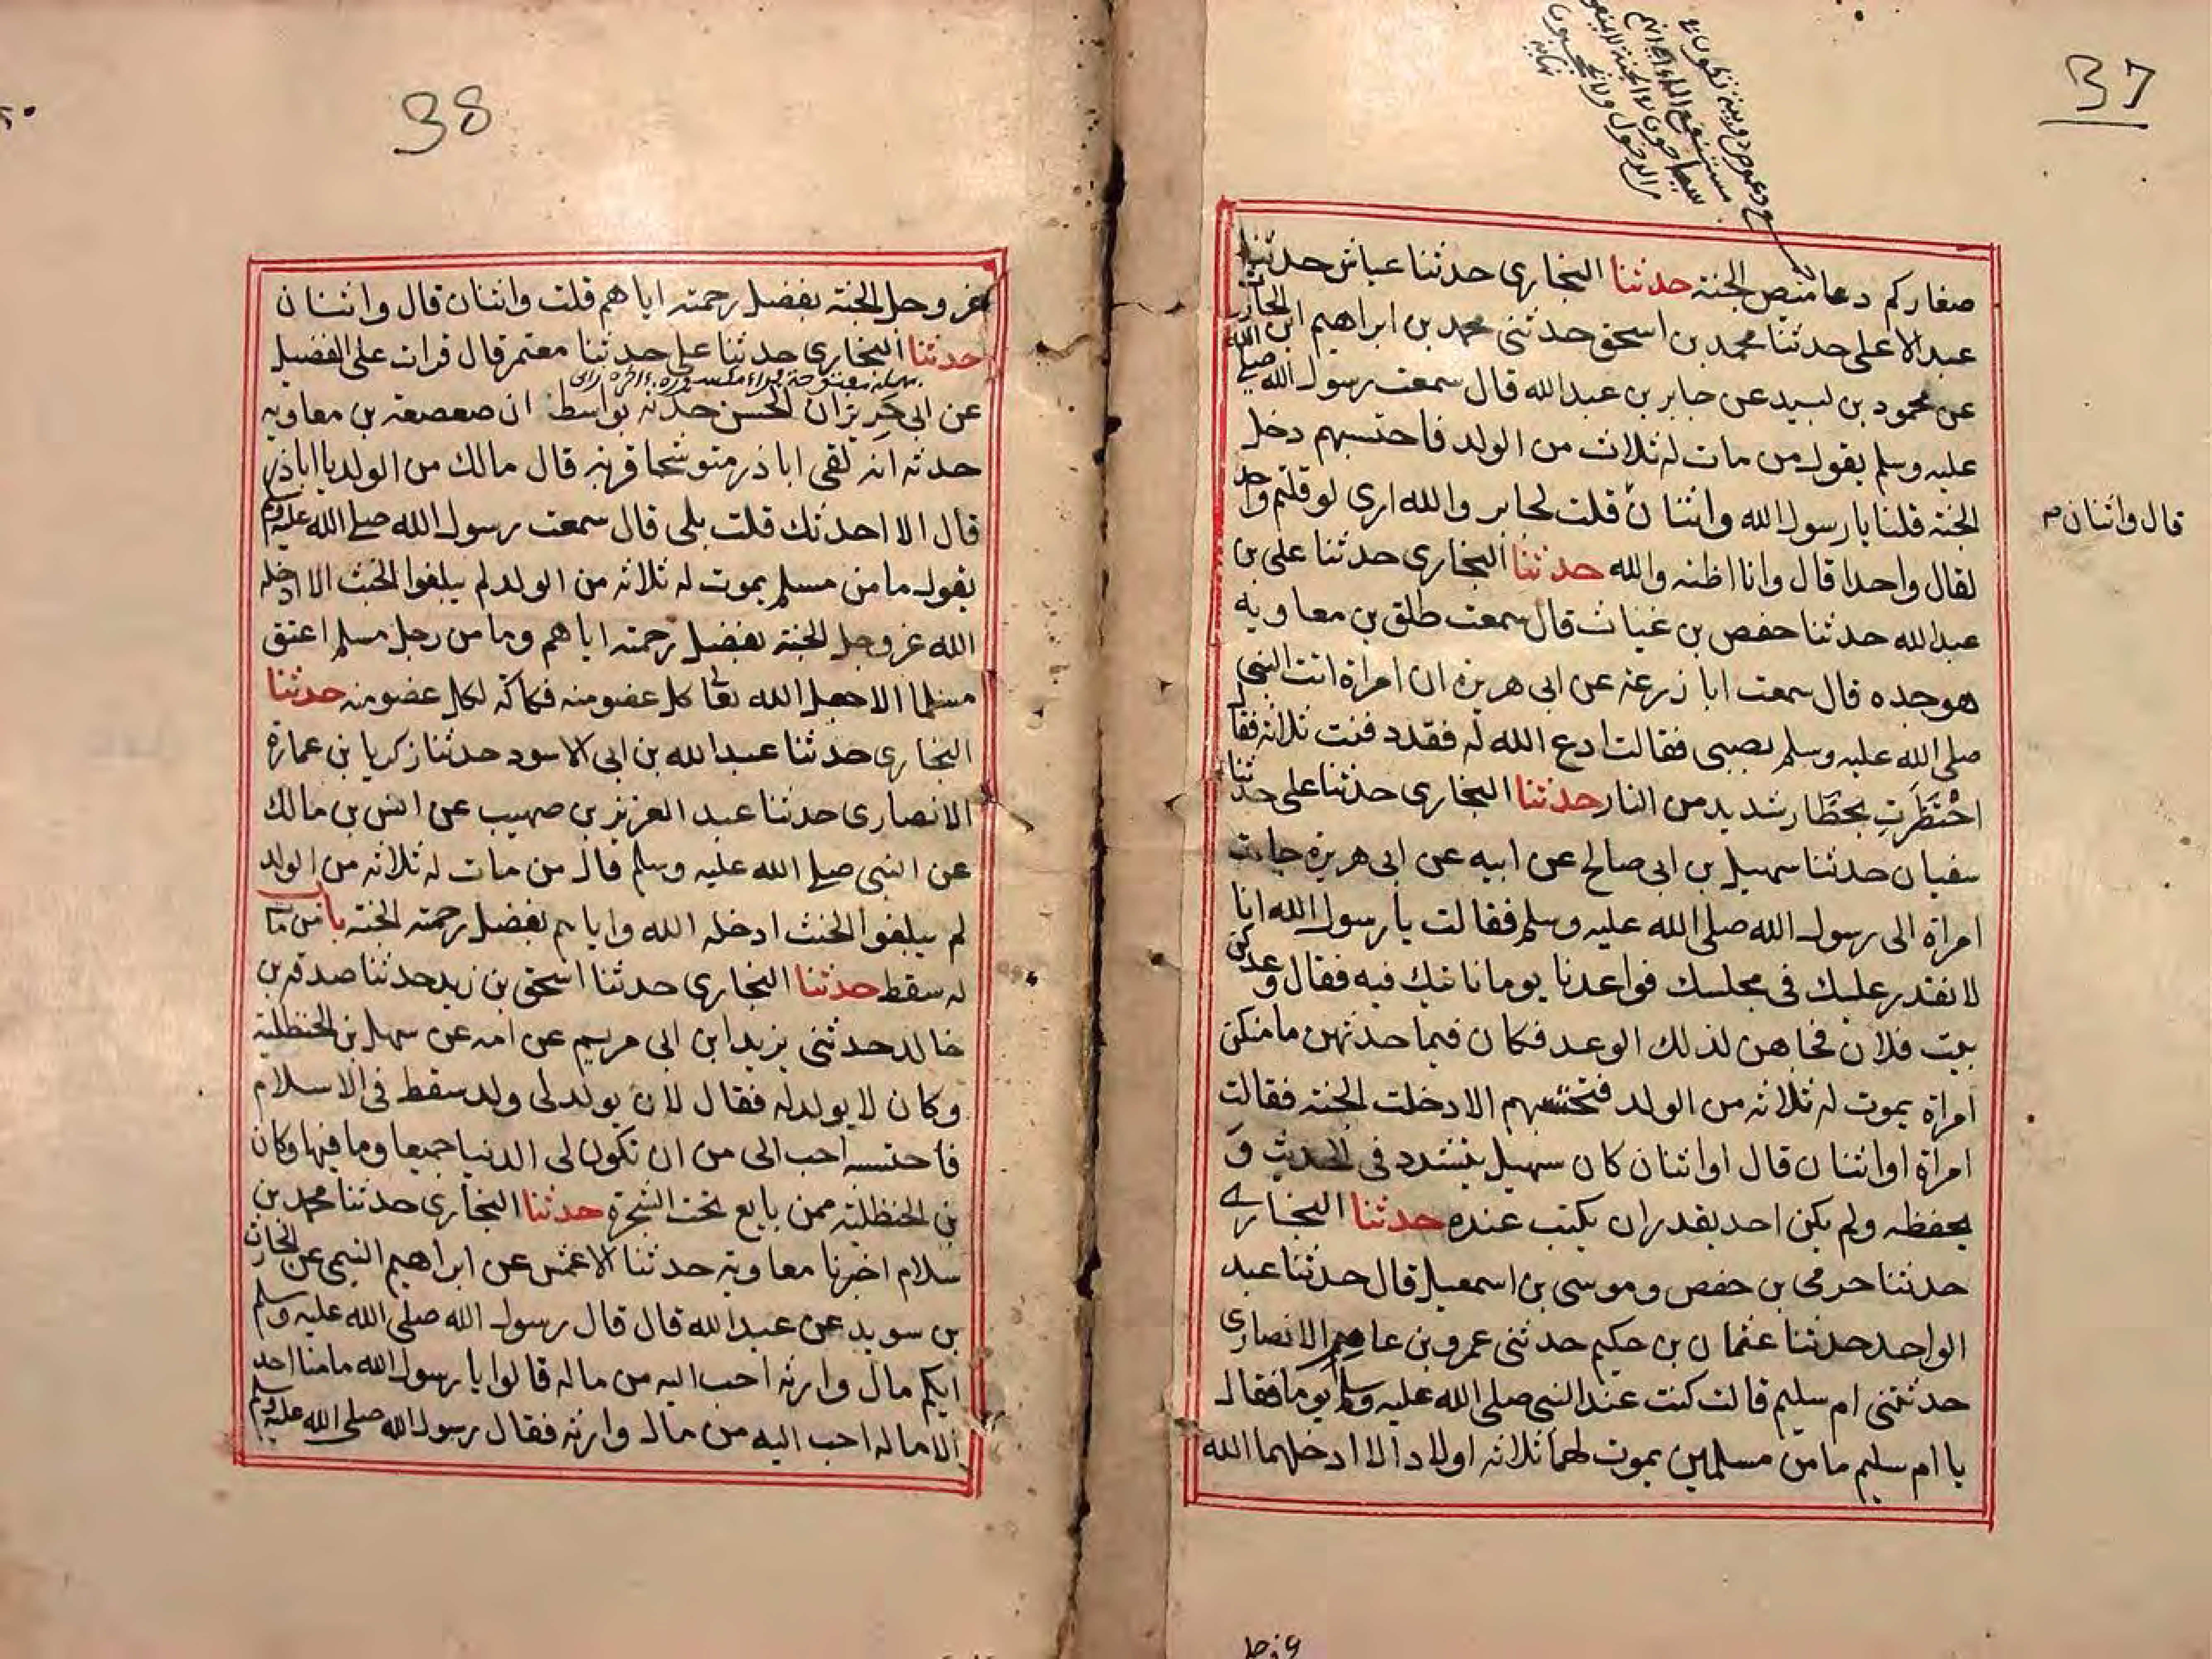 37
صغاركم دعاميص الجنة حدثنا البخاري حدثنا عباش حدثنا
عبد الاعلى حدثنا محمد بن اسحق حدثنى محمد بن ابراهيم ابن الحارث
عن محمود بن لبيد عن جابر بن عبد الله قال سمعت رسول الله صلى الله
عليه وسلم يقول من مات له ثلاث من الولد فاحتسبهم دخل
الجنة قلنا يا رسول الله واثنان قلت لجابر والله ارى لو قلتم وا حد
قال واثنان م
لقال واحدا قال وانا اظنه والله حدثنا البخارى حدثنا على بن
عبد الله حدثنا حفص بن غياث قال سمعت طلق بن معاويه
هو جده قال سمعت ابا زرعة عن ابى هريرة ان امراة اتت النبي
صلى الله عليه وسلم بصبى فقالت ادع الله له فقد دفنت ثلاثة فقا
احْتَظَرَتِ بحظَار شديد من النار حدثنا البخارى حدثنا على حدثنا
سفيان حدثنا سهيل بن ابى صالح عن ابيه عن ابى هريرة جات
امراة الى رسول الله صلى الله عليه وسلم فقالت يا رسول الله انا
لا نقدر عليك فى مجلسك فواعدنا يوما ناتيك فيه فقال وعدكن
بيت فلان فجاهن لذلك الوعد فكان فيما حدثهن ما منكن
امراة يموت له ثلاثة من الولد فتحتسبهم الا دخلت الجنة فقالت
امراة او اثنان قال او اثنان كان سهيل يتشدد فى الحديث و
يحفظه ولم يكن احد يقدر ان يكتب عنده حدثنا البخارے
حدثنا حرمى بن حفص وموسى بن اسمعيل قال حدثنا عبد
الواحد حدثنا عثمان بن حكيم حدثنى عمرو بن عامر الانصارى
حدثتنى ام سليم قالت كنت عند النبى صلى الله عليه وسلم يوما فقال
يا ام سليم ما من مسلمين يموت لهما ثلاثة اولاد الا ادخلهما الله
38
عز وجل الجنة بفضل رحمته اياهم قلت واثنان قال واثنان
حدثنا البخارى حدثنا على حدثنا معتمر قال قرات على الفضيل
عن ابى حَرِيز ان الحسن حدثه بواسط ان صعصعة بن معاويه
حدثه انه لقى ابا ذر متوشحا قربة قال مالك من الولد يا ابا ذر
قال الا احدثك قلت بلى قال سمعت رسول الله صلى الله عليه وسلم
يقول ما من مسلم يموت له ثلاثه من الولد لم يبلغوا الحنث الا ادخله
الله عز وجل الجنة بفضل رحمته اياهم وما من رجل مسلم اعتق
مسلما الا جعل الله تعا كل عضو منه فكاكه لكل عضو منه حدثنا
البخارى حدثنا عبد الله بن ابى الاسود حدثنا زكريا بن عمارة
الانصارى حدثنا عبد العزيز بن صهيب عن انس بن مالك
عن النبى صلى الله عليه وسلم قال من مات له ثلاثه من الولد
لم يبلغوا الحنث ادخله الله واياهم بفضل رحمته الجنة باب من مات
له سقط حدثنا البخارى حدثنا اسحق بن زيد حدثنا صدقه بن
خالد حدثنى يزيد ابن ابى مريم عن امه عن سهل بن الحنظلية
وكان لا يولد له فقال لان يولد لى ولد سقط فى الاسلام
فاحتسبه احب الى من ان تكون لى الدنيا جميعا وما فيها وكان
بن الحنظلية ممن بايع تحت الشجرة حدثنا البخارى حدثنا محمد بن
سلام اخبرنا معاوية حدثنا الاعمش عن ابراهيم التيمى عن الحارث
بن سويد عن عبد الله قال قال رسول الله صلى الله عليه وسلم
ايكم مال وارثه احب اليه من ماله قالوا يا رسول الله ما منا احد
الا ماله احب اليه من مال وارثه فقال رسول الله صلى الله عليه وسلم